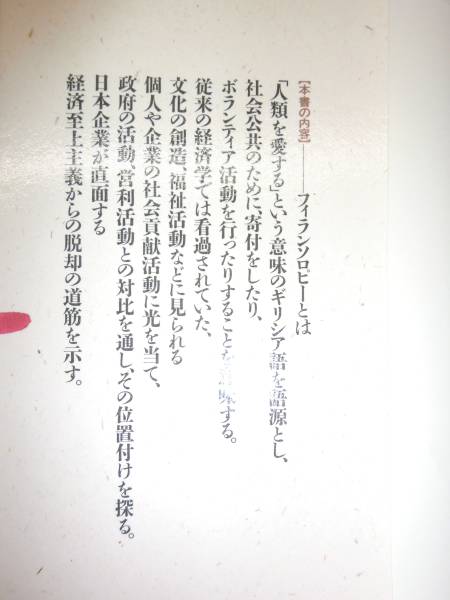 【本書の内容】――フィランソロピーとは
「人類を愛する」という意味のギリシア語を語源とし、
社会公共のために、寄付をしたり、
ボランティア活動を行ったりすることを意味する。
従来の経済学では看過されていた、
文化の創造、福祉活動などに見られる
個人や企業の社会貢献活動に光を当て、
政府の活動、営利活動との対比を通し、その位置付けを探る。
日本企業が直面する
経済至上主義からの脱却の道筋を示す。